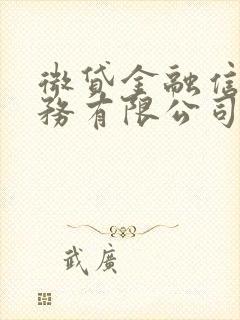 微贷金融信
务有限公司
武广